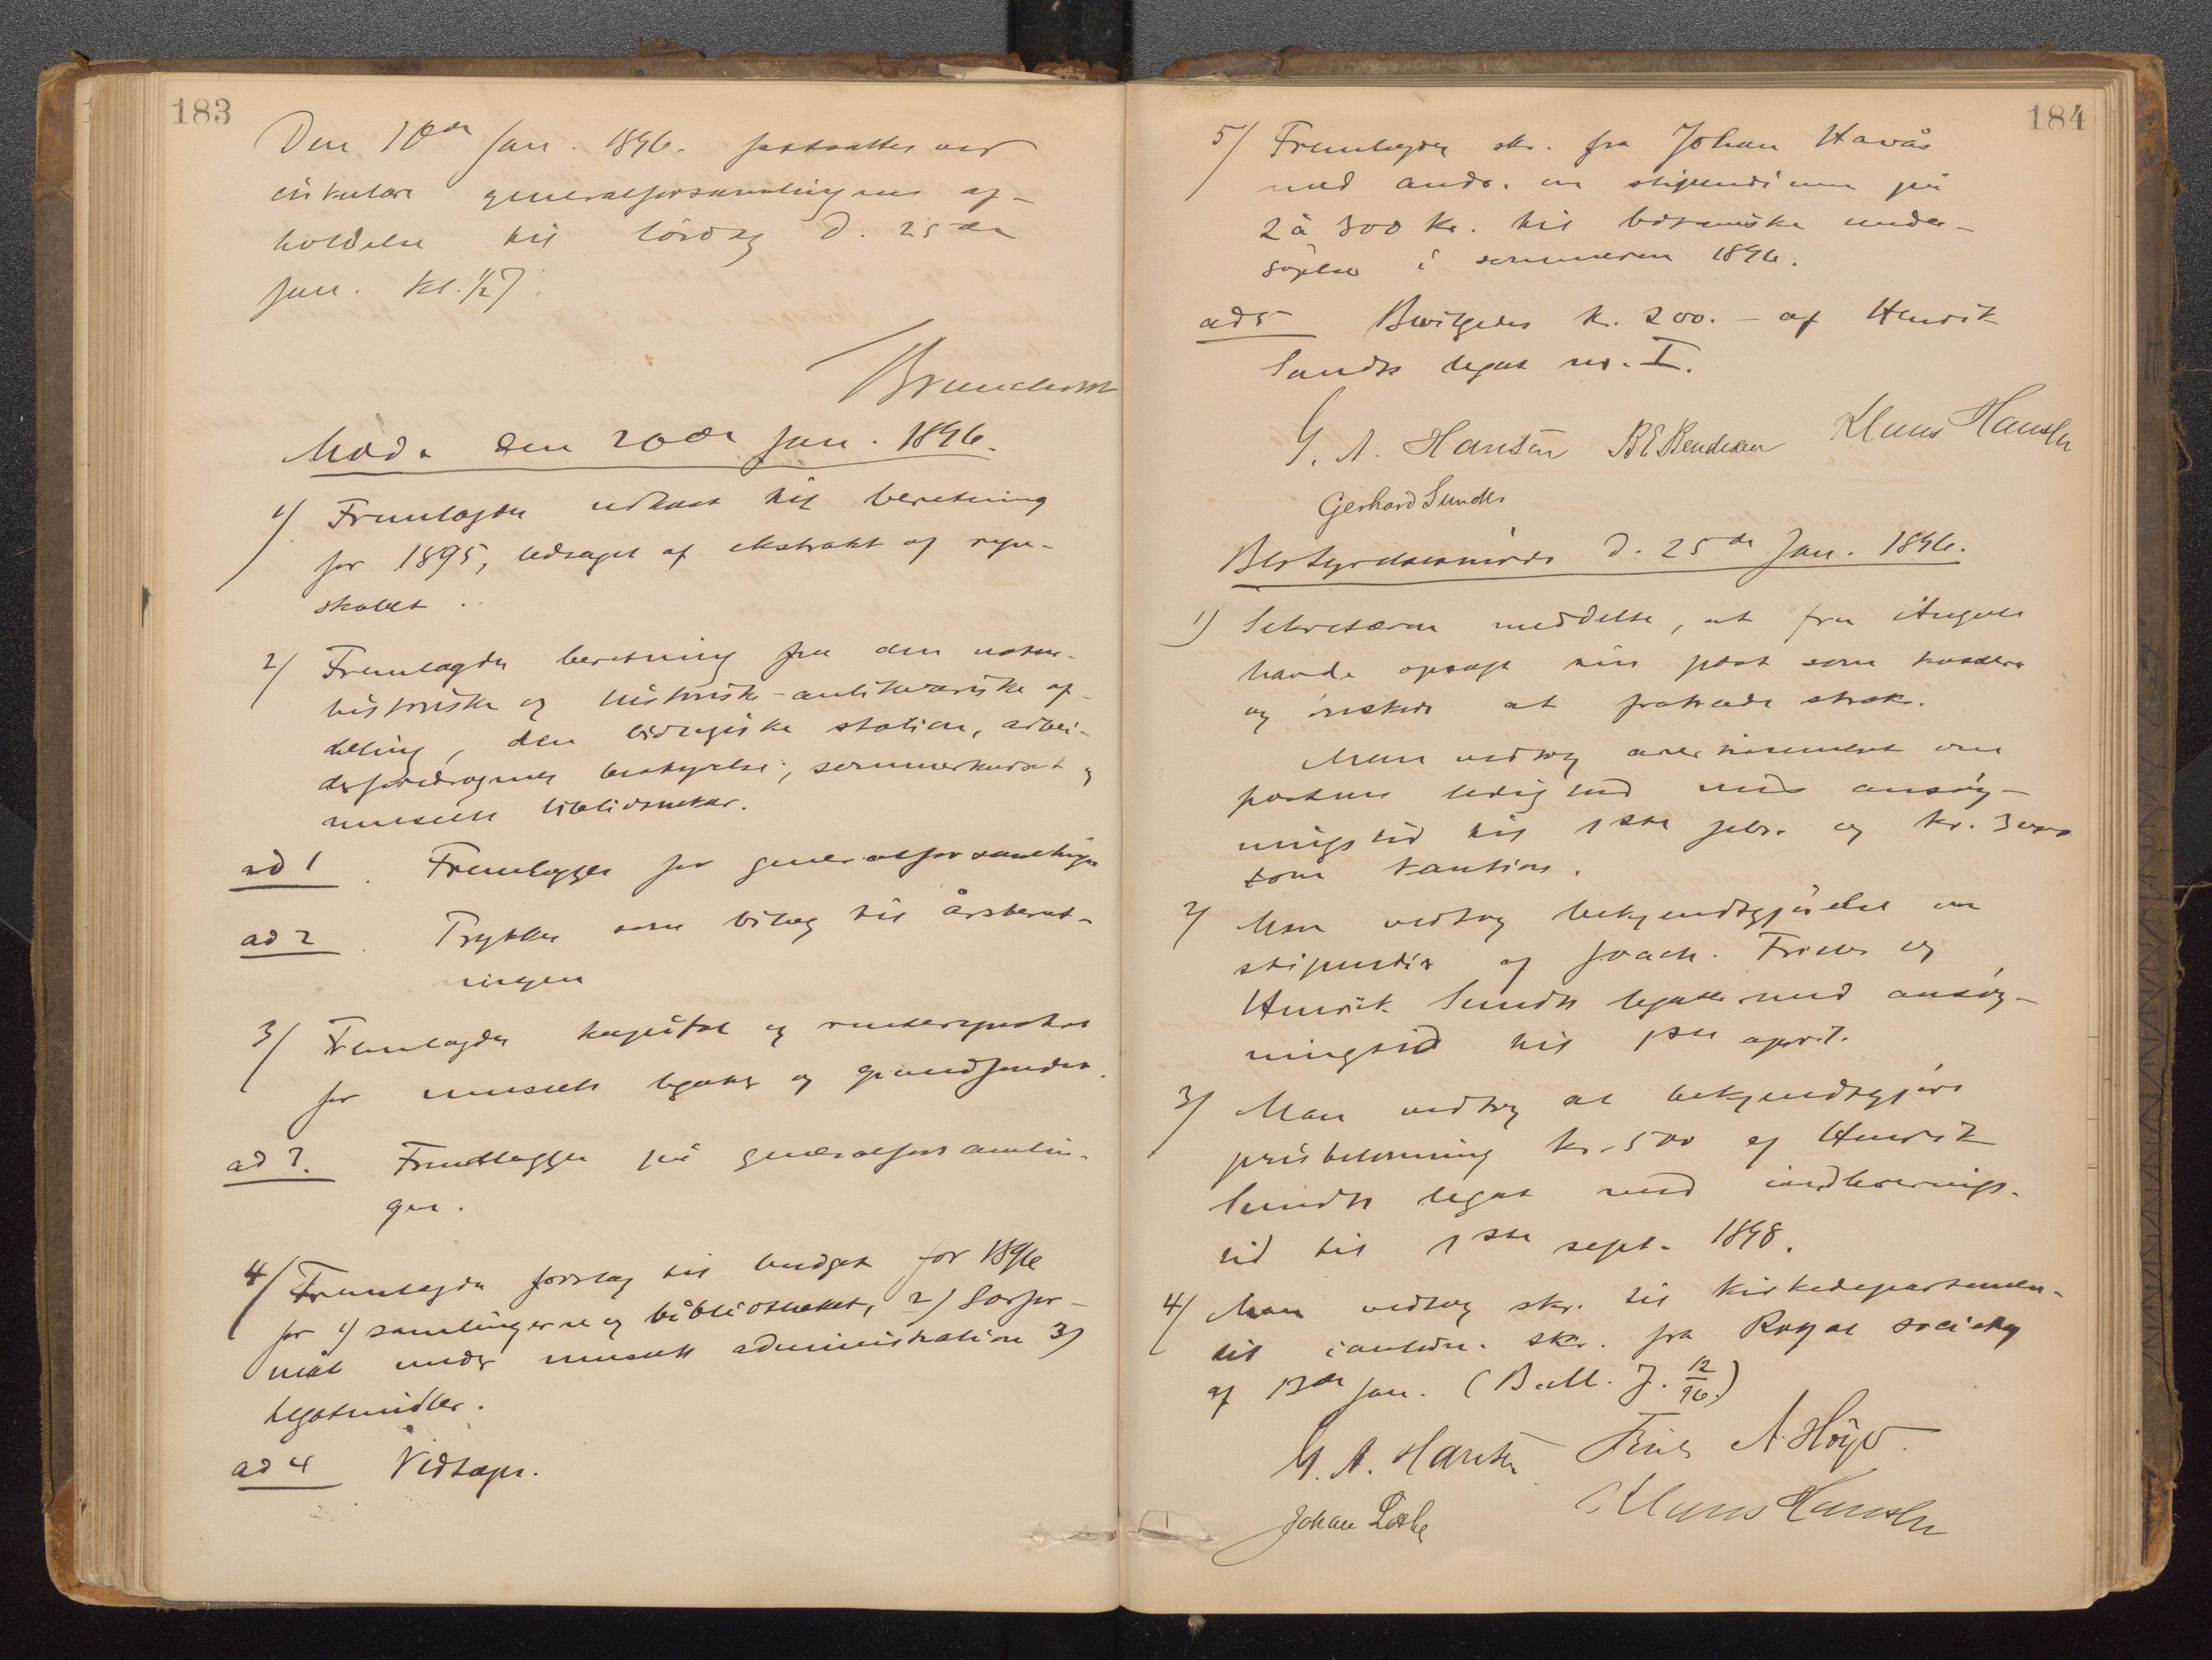 183
Den 10de Jan. 1896. fastsattes ved
cirkulære generalforsamlingens af-
holdelse til lördag d. 25de
Jan. kl. 1/2 7.
Brunchorst
Möde den 20de Jan. 1896.
1/ Fremlagdes udkast til beretning
for 1895, ledsaget af ekstrakt af regn-
skabet.
2/ Fremlagdes beretning fra den natur-
historiske og historisk-antikvariske af-
deling, den biologiske station, arbei-
derforedragenes bestyrelse, sommerkurset og
museets bibliothekar.
ad 1. Fremlægges for generalforsamlingen
ad 2. Trykkes som bilag til årsberet-
ningen
3/ Fremlagdes kapital og renteregnskab
for museets legater og grundfondet.
ad 3. Fremlægges på generalforsamlin-
gen.
4/ Fremlagdes forslag til budget for 1896
for 1/ samlingerne og bibliotheket, 2/ Særfor-
mål under museets administration 3/
legatmidler.
ad 4 Vedtages.
184
5/ Fremlagdes skr. fra Johan Havås
med ands. om stipendium på
2 à 300 kr. til botaniske under-
sögelser i sommeren 1896.
ad 5 Bevilgedes kr. 200.- af Henrik
Sundts legat no. I.
G. A. Hansen B E Bendixen Klaus Hanssen
Gerhard Sundt
Bestyrelsesmöde d. 25de Jan. 1896.
1) Sekretæren meddelte, at fru
havde opsagt sin post som kasserer
og önskede at fratræde straks.
Man vedtog avertissement om
postens ledighed med ansög-
ningstid til 1ste febr. og kr. 3000
som kaution.
2/ Man vedtog bekjendtgjörelse om
stipendier af Joach. Frieles og
Henrik Sundts legater med ansög-
ningstid til 1ste april.
3/ Man vedtog at bekjendtgjöre
prisbelönning kr. 500 af Henrik
Sundts legat med indleverings-
tid til 1ste sept. 1898.
4/ Man vedtog skr. til kirkedepartemen-
tet i anledn. skr. fra Royal society
af 13de Jan. (B.M. J. 12/96.)
G. A. Hansen Friis A. Höyer
Johan Klaus Hanssen